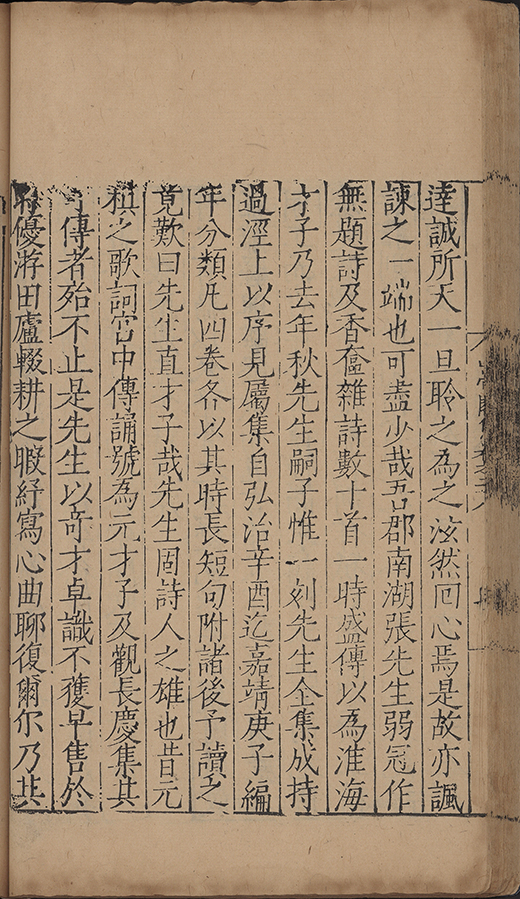 達誠所天一旦聆之為之泫然回心焉是故亦諷
諫之一端也可盡少哉吾郡南湖張先生弱冠作
無題詩及香奩雜詩數十首一時盛傳以為淮海
才子乃去年秋先生嗣子惟一刻先生全集成持
過涇上以序見屬集自弘治辛酉迄嘉靖庚子編
年分類凡四卷各以其時長短句附諸後予讀之
竟歎曰先生直才子哉先生固詩人之雄也昔元
稹之歌詞宮中傳誦號為元才子及觀長慶集其
可傳者殆不止是先生以奇才卓識不獲早售於
時優游田廬輟耕之暇紓寫心曲聊復爾尔乃其